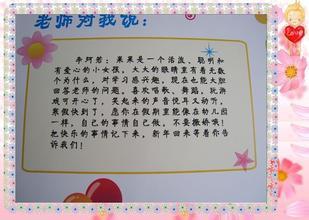 老师对我说：
李珂若：果果是一个活泼、聪明和
有爱心的小女孩，大大的眼睛里有着无数
个为什么，对学习感兴趣，现在也能大胆
回答老师的问题，喜欢唱歌、舞蹈，玩游
戏可开心了，笑起来的声音悦耳又动听，
寒假快到了，愿你在假期里能像在幼儿园
一样，自己的事情自己做，不要撒娇哦！
把快乐的事情记下来，新年回来等着你告
诉我们！
Love